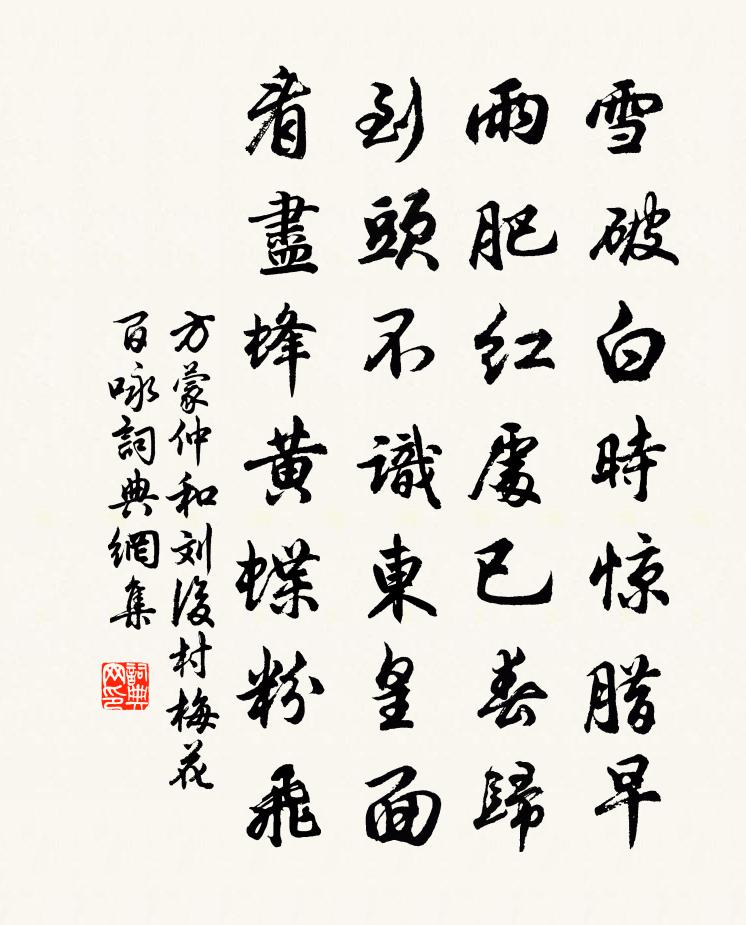 雪破白時惊腊早
雨肥红處已春歸
到頭不識東皇面
看盡蜂黄蝶粉飛
方蒙仲和刘後村梅花
百咏詞典網集
詞典網印